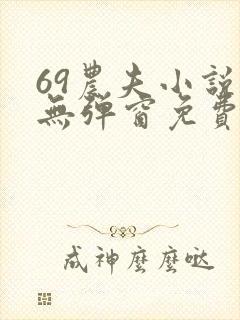 69農夫小説
無彈窗免費
成神麼麼噠